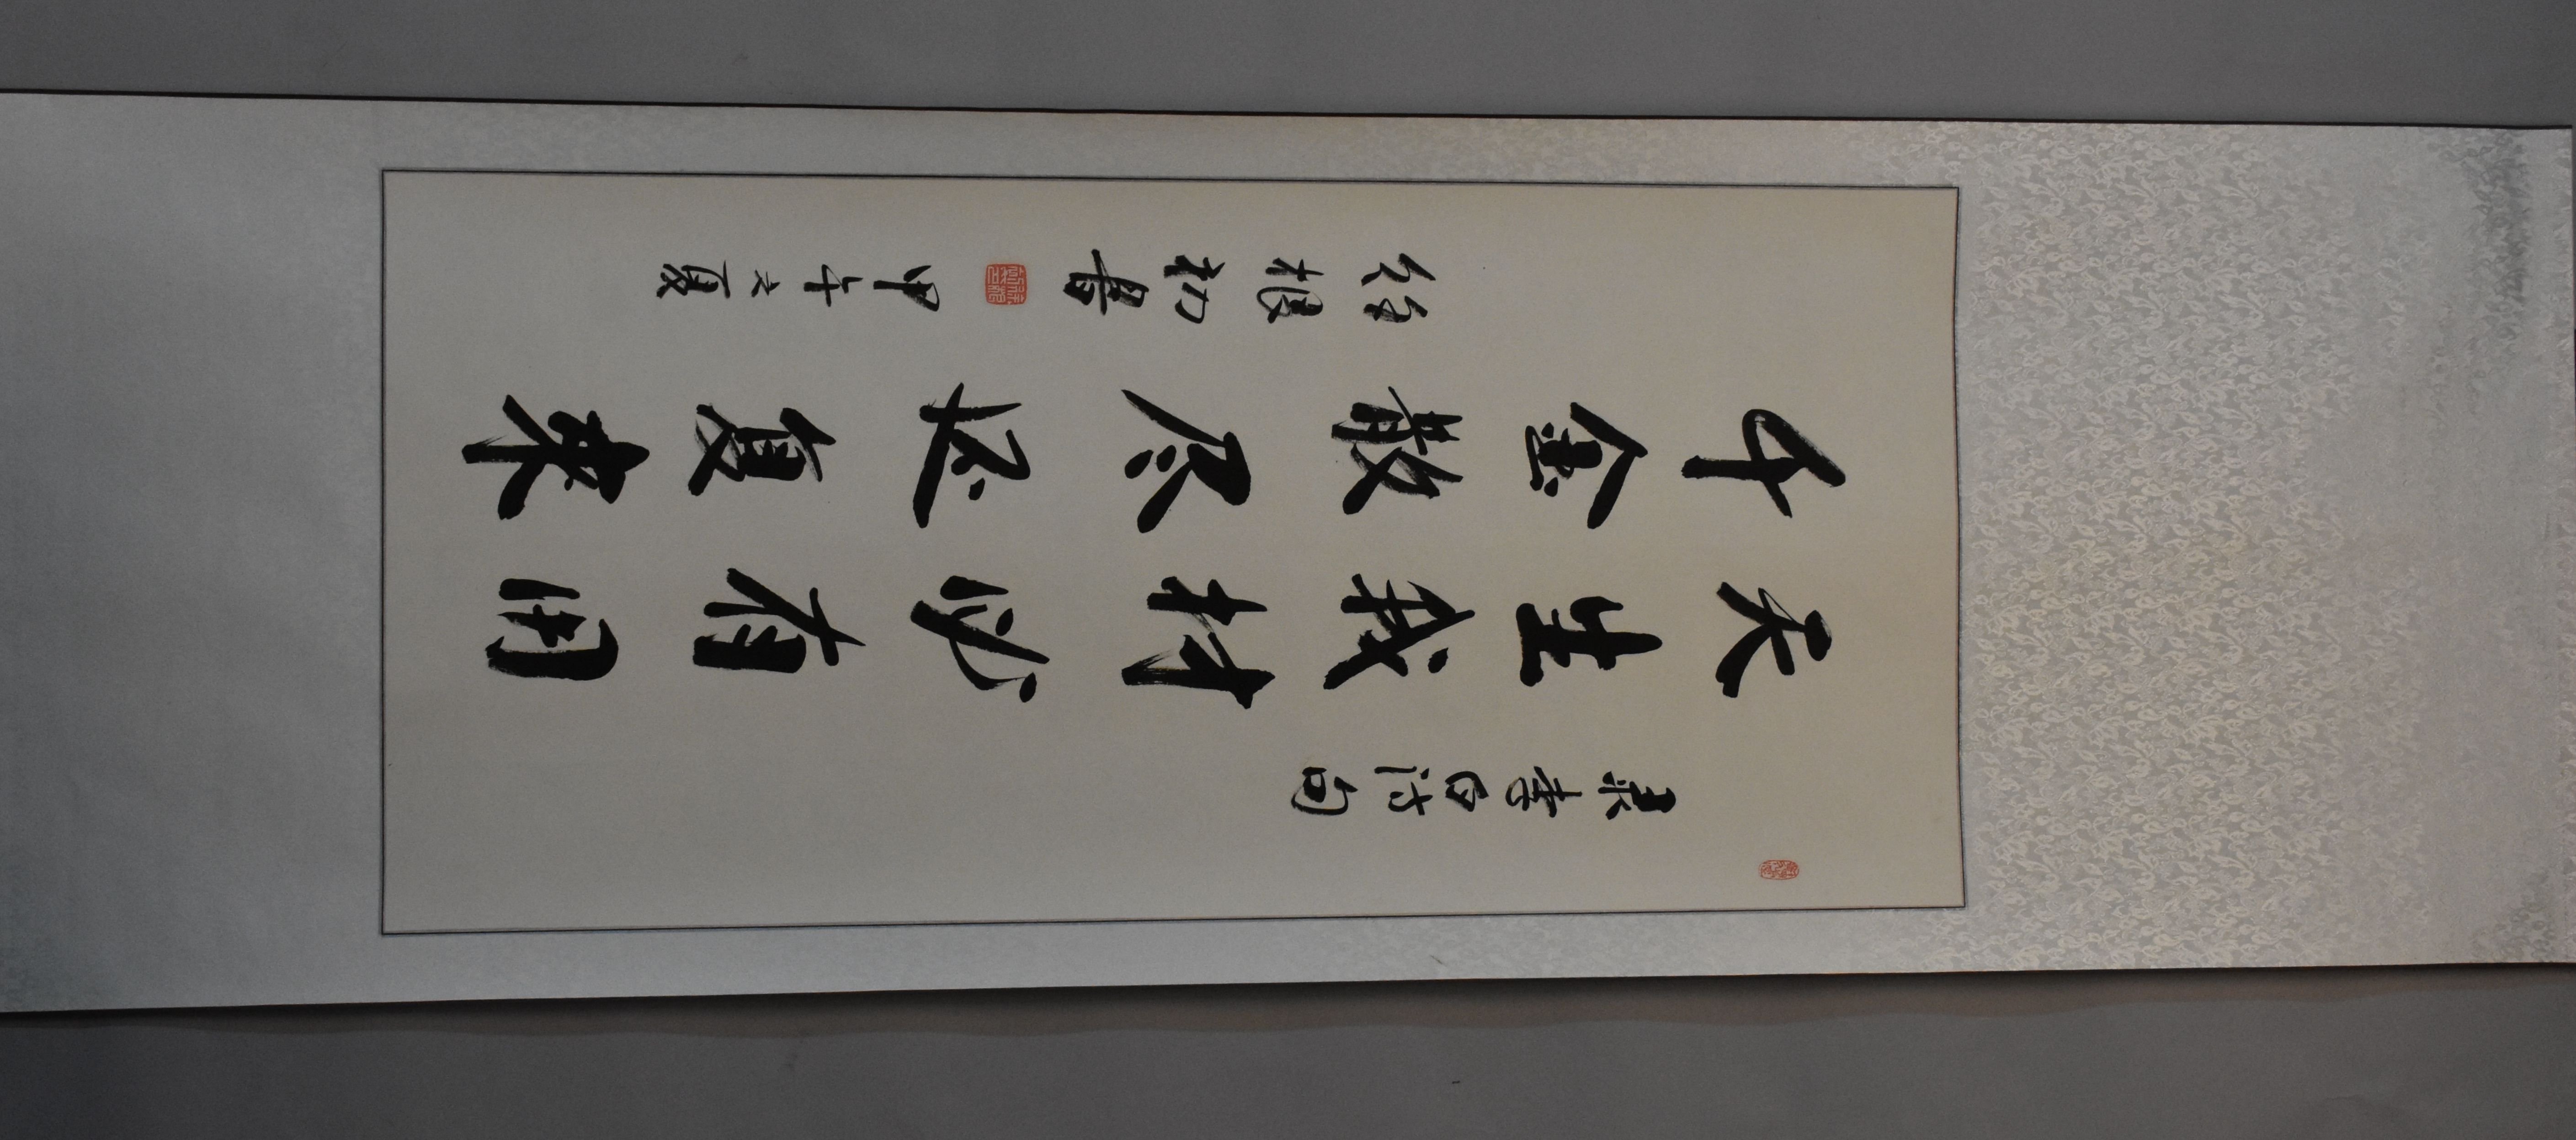 录李白诗句
天生我材必有用
千金散尽还复来
趙樸初書 甲午之夏